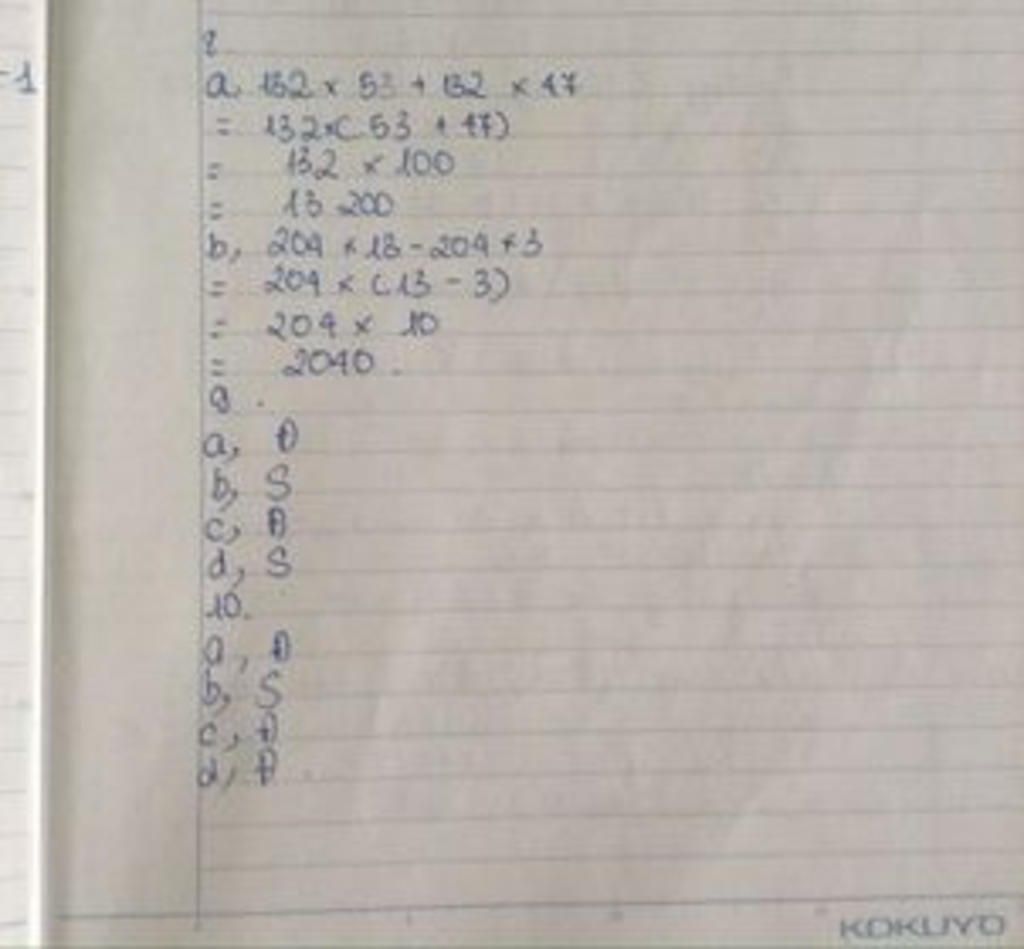 -1
8
a, 132 × 53 + 132 × 47
= 132×( 53 + 47)
= 132 × 100
= 13 200
b, 204 × 13 - 204 × 3
= 204 × (13 - 3)
= 204 × 10
= 2040 .
9 .
a, Đ
b, S
c, Đ
d, S
10.
a, Đ
b, S
c, Đ
d, Đ
KOKUYO